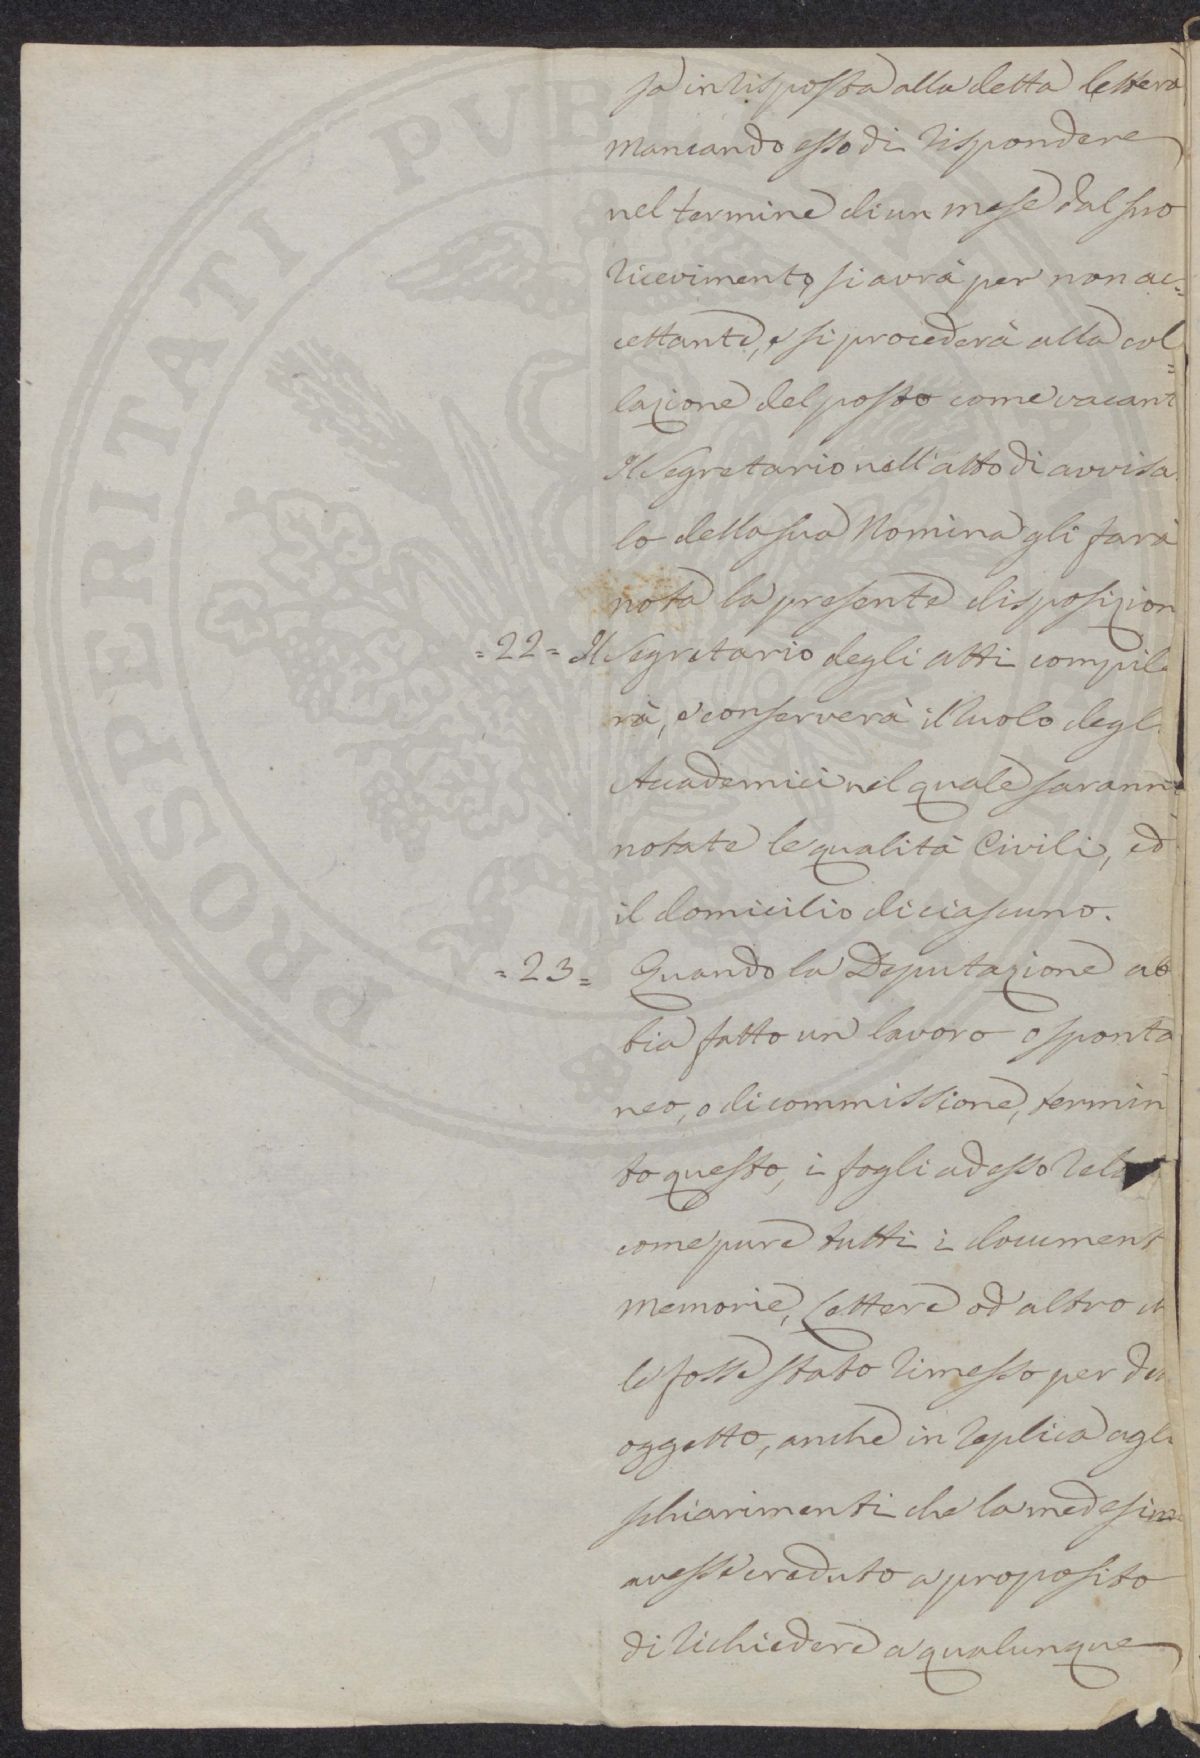 sa in risposta alla detta lettera
mancando esso di rispondere
nel termine di un mese dal suo
ricevimento, si avrà per non ac=
cettante, e si procederà alla col=
lazione del posto come vacant
Il Segretario nell'atto di avvisa
lo della sua Nomina gli farà
nota la presente disposizion
=22= Il Segretario degli atti compile
rà, e conserverà il Ruolo degl
Accademici nel quale sarann
notate le qualità Civili, ed
il domicilio di ciascuno.
=23= Quando la Deputazione ab
bia fatto un lavoro o sponta
neo, o di commissione, termin
to questo, i fogli ad esso rela
come pure tutti i document
memorie, Lettere od altro ch
le fosse stato rimesso per
oggetto, anche in replica agli
schiarimenti che la medesim
avesse creduto a proposito
di richiedere a qualunque
PROSPERITATI PVBLICAE